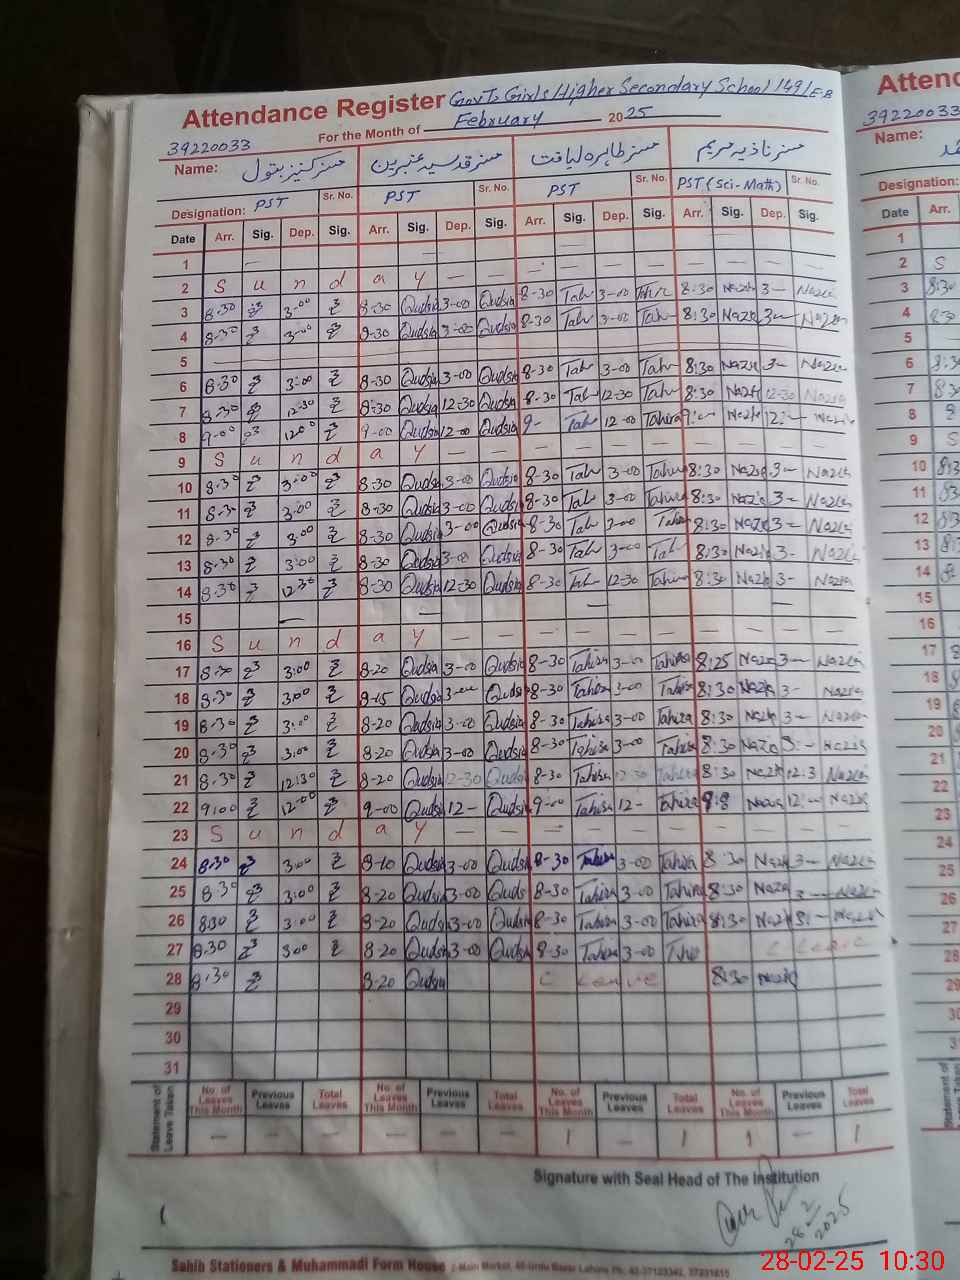 Attendance Register Govt. Girls Higher Secondary School 149/E-B
For the Month of February 2025
39220033
Name: مسز کنیز بتول مسز قدسیہ عنبرین مسز طاہرہ لیاقت مسز نازیہ مریم
Designation: PST Sr. No. PST Sr. No. PST Sr. No. PST (Sci-Math) Sr. No.
Date Arr. Sig. Dep. Sig. Arr. Sig. Dep. Sig. Arr. Sig. Dep. Sig. Arr. Sig. Dep. Sig.
1 —
2 S u n d a y — — — — — — — — — —
3 8:30 3:00 8-30 Qudsia 3-00 Qudsia 8-30 Tah 3-00 8:30 Nazia 3— Nazia
4 8:30 3:00 8-30 Qudsia 3-00 Qudsia 8-30 Tah 3-00 Tah 8:30 Nazia 3— Nazia
5
6 8:30 3:00 8-30 Qudsia 3-00 Qudsia 8-30 Tah 3-00 Tah 8:30 Nazia 3- Nazia
7 8:30 12:30 8-30 Qudsia 12-30 Qudsia 8-30 Tah 12-30 Tah 8:30 Nazia 12-30 Nazia
8 9-00 12:00 9-00 Qudsia 12-00 Qudsia 9- Tah 12-00 Tahira 9:— Nazia 12:— Nazia
9 S u n d a y — — — — — — — — — —
10 8:30 3:00 8-30 Qudsia 3-00 Qudsia 8-30 Tah 3-00 Tahira 8:30 Nazia 3— Nazia
11 8:30 3:00 8-30 Qudsia 3-00 Qudsia 8-30 Tah 3-00 Tahira 8:30 Nazia 3- Nazia
12 8:30 3:00 8-30 Qudsia 3-00 Qudsia 8-30 Tah 3-00 Tahira 8:30 Nazia 3- Nazia
13 8:30 3:00 8-30 Qudsia 3-00 Qudsia 8-30 Tah 3-00 Tah 8:30 Nazia 3- Nazia
14 8:30 12:30 8-30 Qudsia 12-30 Qudsia 8-30 Tah 12-30 Tahira 8:30 Nazia 3- Nazia
15 — — — —
16 S u n d a y — — — — — — — — — —
17 8:30 3:00 8-20 Qudsia 3-00 Qudsia 8-30 Tahira 3-00 Tahira 8:25 Nazia 3— Nazia
18 8:30 3:00 8-15 Qudsia 3-00 Qudsia 8-30 Tahira 3-00 Tahira 8:30 Nazia 3- Nazia
19 8:30 3:00 8-20 Qudsia 3-00 Qudsia 8-30 Tahira 3-00 Tahira 8:30 Nazia 3— Nazia
20 8:30 3:00 8-20 Qudsia 3-00 Qudsia 8-30 Tahira 3-00 Tahira 8:30 Nazia 3:- Nazia
21 8:30 12:30 8-20 Qudsia 12-30 Qudsia 8-30 Tahira 12-30 Tahira 8:30 Nazia 12:3 Nazia
22 9:00 12:00 9-00 Qudsia 12- Qudsia 9-00 Tahira 12- Tahira Nazia 12:— Nazia
23 S u n d a y — — — — — — — — — —
24 8:30 3:00 8-10 Qudsia 3-00 Qudsia 8-30 Tahira 3-00 Tahira 8:30 Nazia 3— Nazia
25 8:30 3:00 8-20 Qudsia 3-00 Qudsia 8-30 Tahira 3-00 Tahira 8:30 Nazia 3— Nazia
26 8:30 3:00 8-20 Qudsia 3-00 Qudsia 8-30 Tahira 3-00 Tahira 8:30 Nazia 3:— Nazia
27 8:30 3:00 8-20 Qudsia 3-00 Qudsia 8-30 Tahira 3-00 C Leave
28 8:30 8-20 Qudsia C Leave 8:30 Nazia
29
30
31
Statement of Leave Taken
No. of Leaves This Month Previous Leaves Total Leaves No. of Leaves This Month Previous Leaves Total Leaves No. of Leaves This Month Previous Leaves Total Leaves No. of Leaves This Month Previous Leaves Total Leaves
— — — — — — 1 — 1 1 — 1
Signature with Seal Head of The Institution
28-2-2025
Sahib Stationers & Muhammadi Form House 2-Main Market, 40-Urdu Bazar Lahore Ph: 42-37123342, 37231615
28-02-25 10:30
Attend
39220033
Name:
Designation:
Date Arr.
1
2 S
3 8:30
4 8:30
5 —
6 8:30
7 8:30
8 9
9 S
10 8:3
11 8:3
12 8:3
13 8:
14 8:
15
16
17 8
18
19
20
21
22
23
24
25
26
27
28
29
30
Statement of Leave Taken